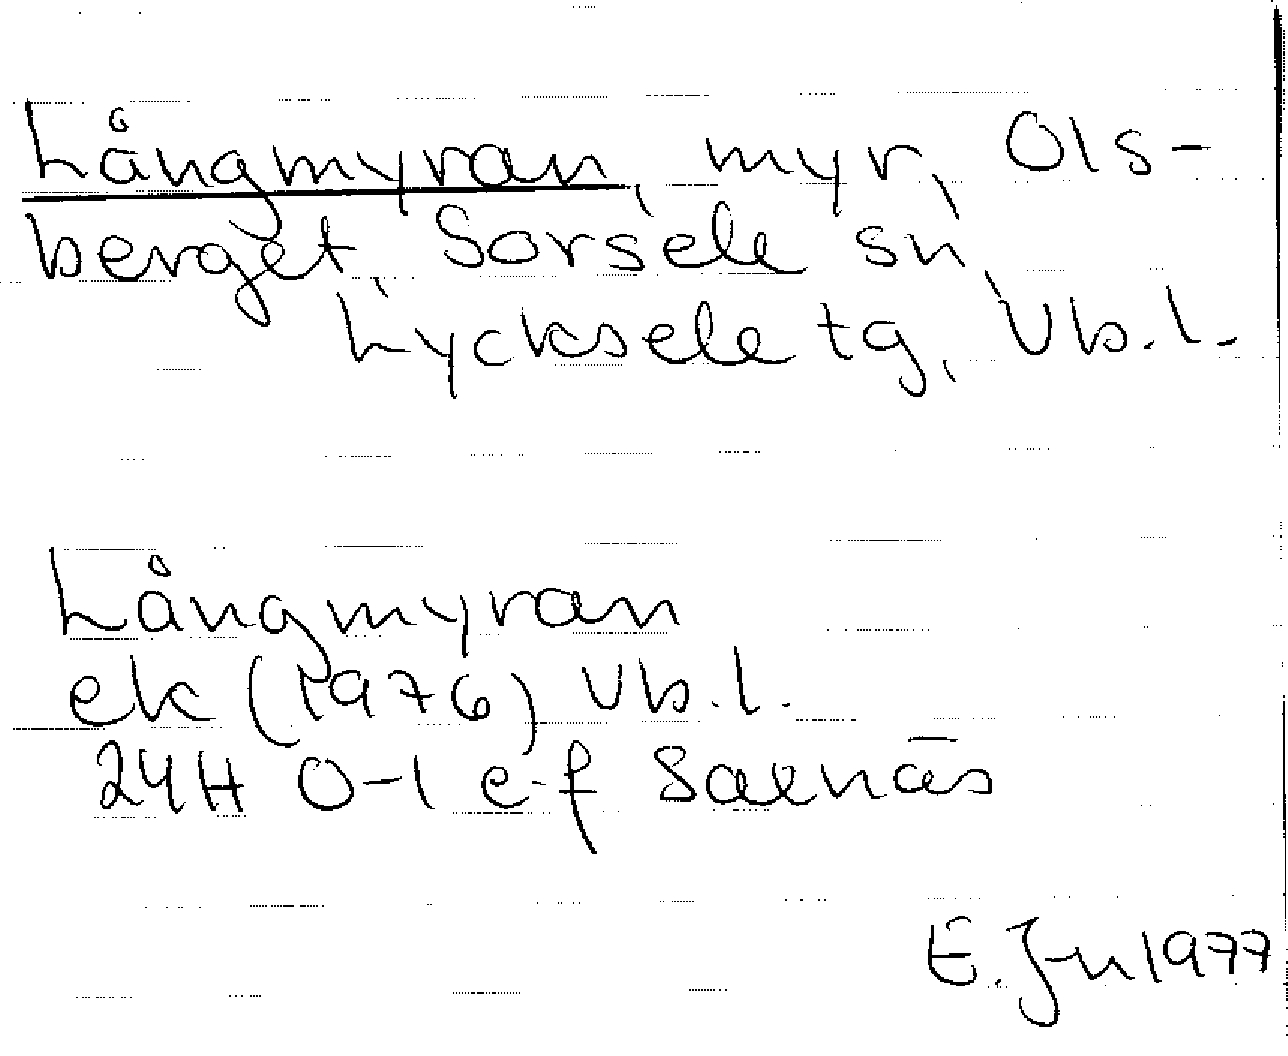 Långmyran, myr, Ols-
berget, Sorsele sn,
Lycksele tg, Vb.l.
Långmyran
ek (1976) Vb.l.
24H 0-1 e-f
E. 1977